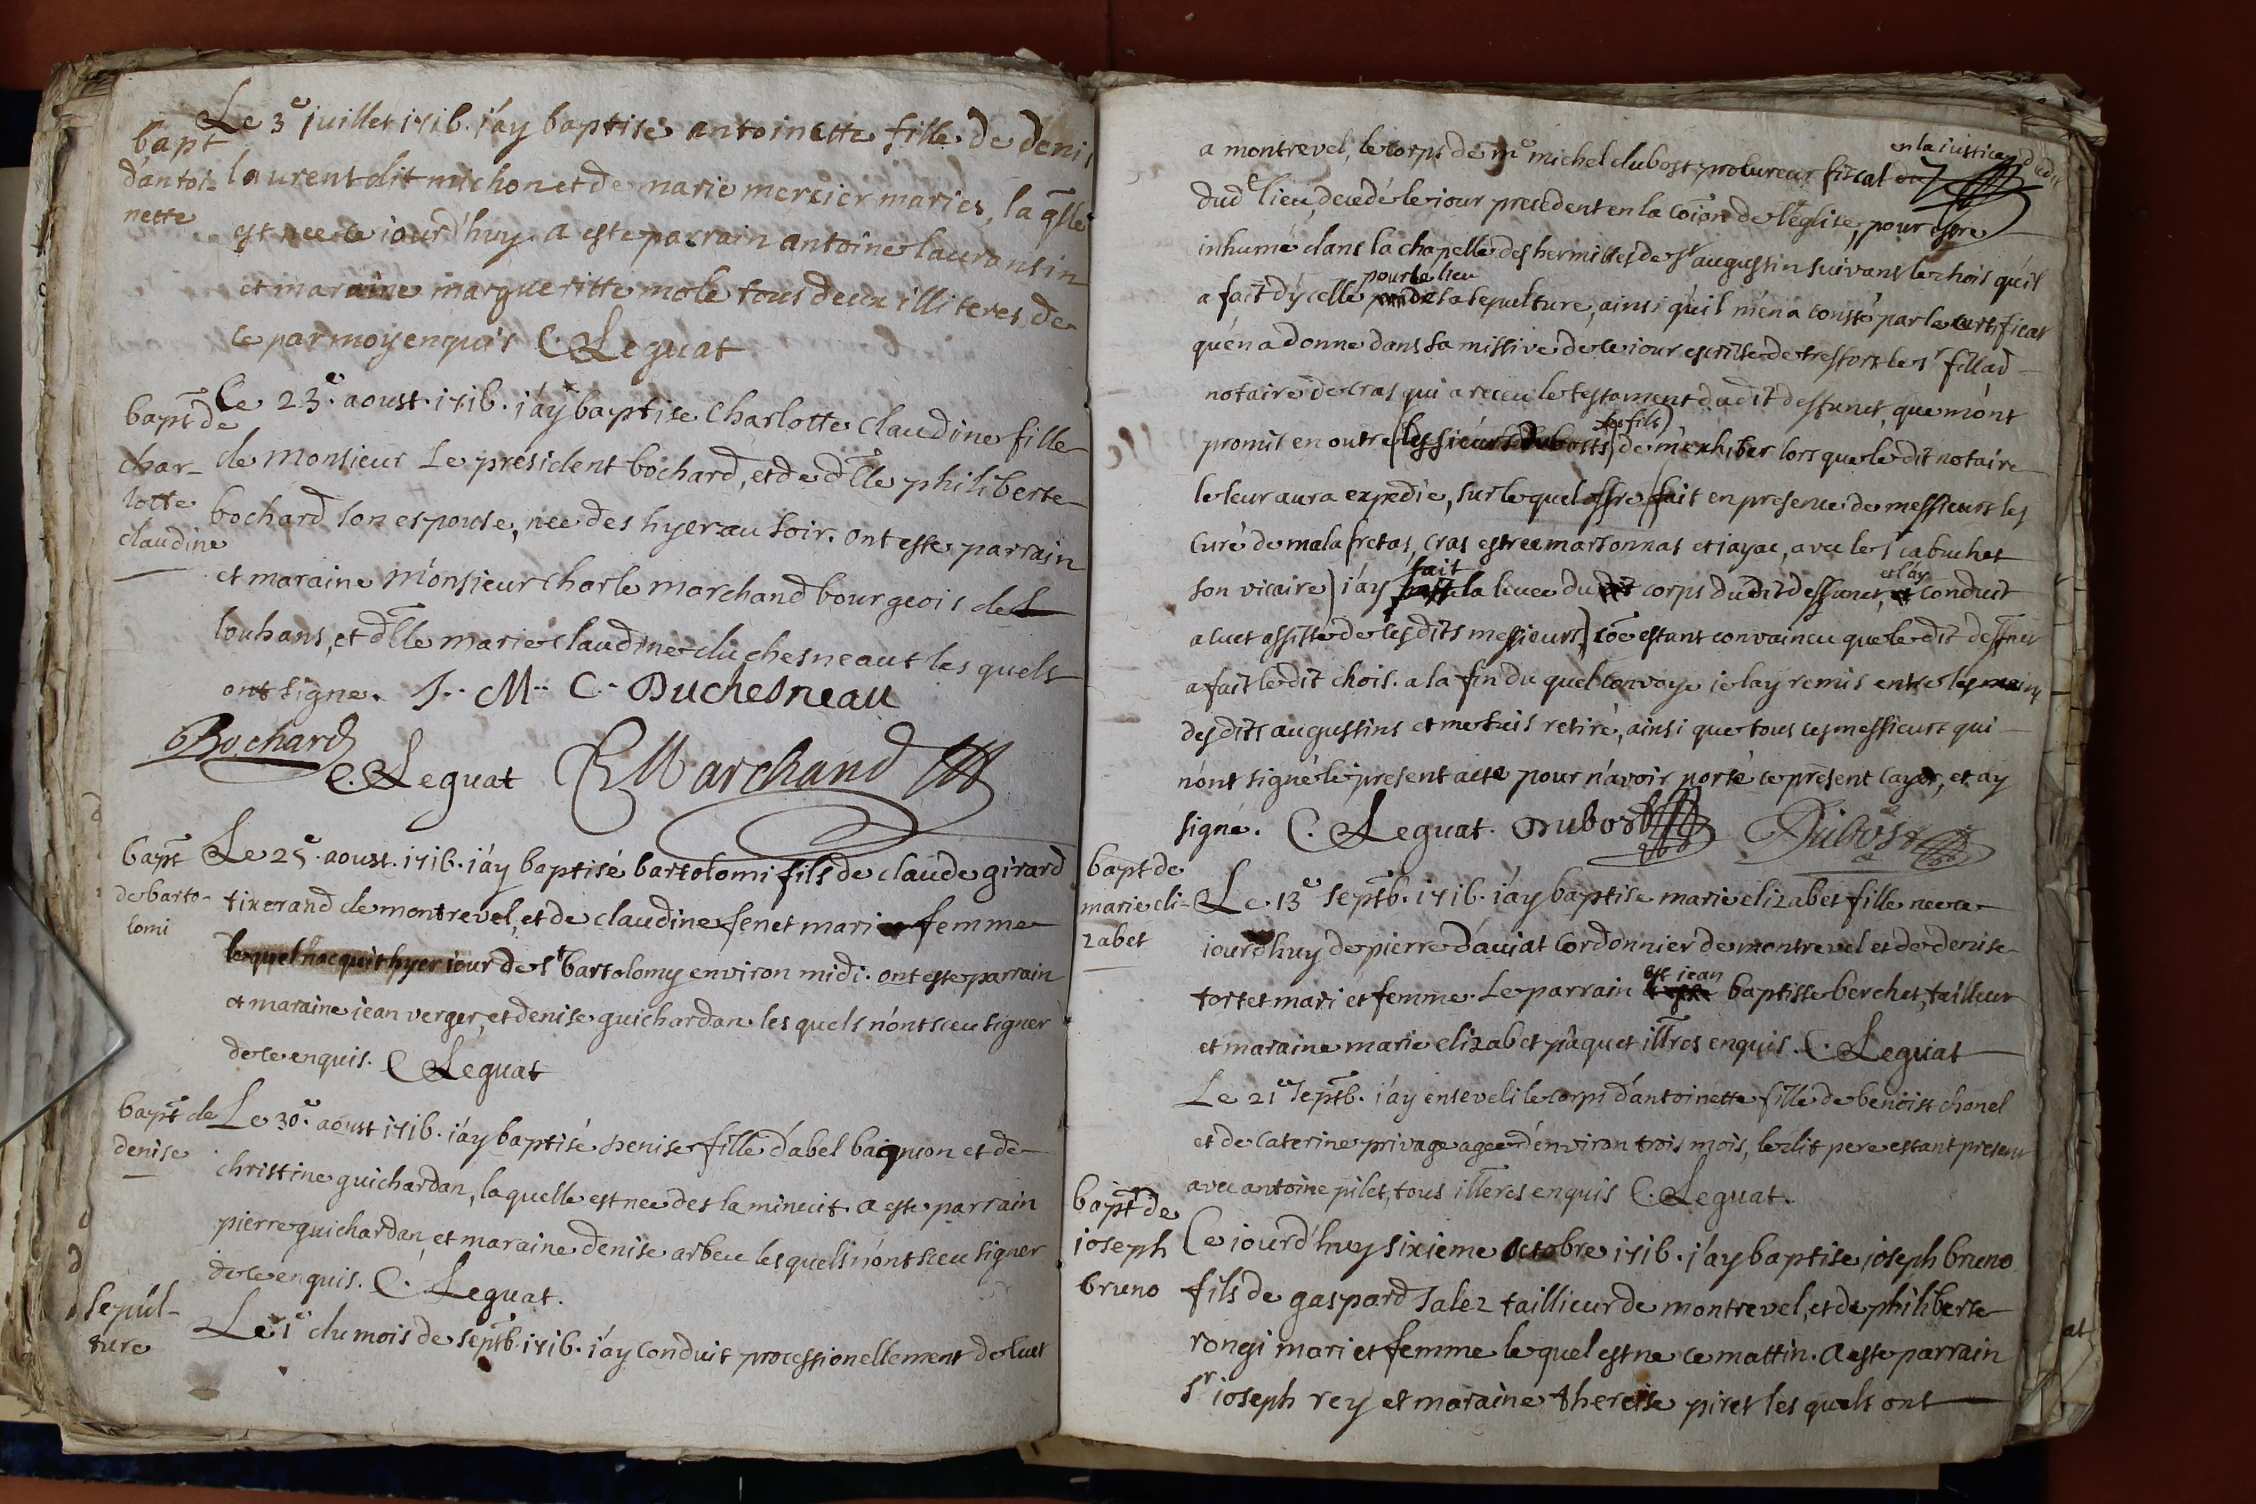 Le 3e juillet 1716. j'ay baptisé antoinette fille de denis
bapt
d'antoi-
nette
laurent dit michon et de marie mercier mariés, la qlle
est nee ce iourd'huy. a esté parrain antoine lauransin
et maraine margueritte mole tous deux illiteres de
ce par moy enquis C. Leguat
bapt de
char-
lotte
claudine
Ce 23e. aoust. 1716. j'ay baptise Charlotte Claudine fille
de Monsieur Le président bochard, et de dlle philiberte
bochard son espouse, nee des hyer au soir. ont este parrain
et maraine monsieur charle marchand bourgeois de
louhans, et dlle marie claudine duchesneaut les quels
ont signe. J. M. C. Duchesneau
Bochard
C. Leguat C Marchand
bapt
de barto-
lomi
Le 25e. aoust. 1716. j'ay baptisé bartolomi fils de claude girard
tixerand de montrevel, et de claudine fenet mari et femme
lequel nacquit hyer iour de st bartolomy environ midi. ont este parrain
et maraine iean verger, et denise guichardan les quels n'ont sceu signer
de ce enquis. C Leguat
bapt de
denise
Le 30e. aoust 1716. j'ay baptisé denise fille d'abel baignon et de
christine guichardan, laquelle est nee des la minuit. a este parrain
pierre guichardan, et maraine denise arbeu les quels n'ont sceu signer
de ce enquis. C. Leguat.
sepul-
ture
Le 1e du mois de septb. 1716. j'ay conduit processionellement de luet
en la iustice
a montrevel, le corps de me michel dubost procureur fiscal
dud lieu, decedé le iour precedent en la coion de l'eglise, pour estre
inhumé dans la chapelle des hermittes de st augustin suivant le chois qu'il
pour le lieu
a fait d'ycelle de sa sepulture, ainsi qu'il m'en a consté par le certificat
qu'en a donne dans sa missive de ce iour escritte de treffort le sr fillad
notaire de cras qui a receu le testament dudit deffunct, que m'ont
ses fils)
promit en outre (les sieurs dubosts) de m'exhiber lors que le dit notaire
le leur aura expedie, sur le quel offre (fait en presence de messieurs les
curé de malafretas, cras estree marsonnas et iayac, avec le sr cabuchet
fait
et l'ay
son vicaire) j'ay la levee du corps dudit deffunct, conduit
a luet assisté de les dits messieurs) coe estant convaincu que le dit deffnct
a fait le dit chois. a la fin du quel convoye ie lay remis entre les mains
des dits augustins et me suis retiré, ainsi que tous ces messieurs qui
n'ont signé le present acte pour n'avoir porté ce present cayer, et ay
signé. C. Leguat. Dubost Dubost
bapt de
marie eli-
zabet
Le 13e septb. 1716. j'ay baptise marie elizabet fille nee ce
iourd'huy de pierre d'aujat cordonnier de montrevel et de denise
est jean
tortet mari et femme. Le parrain baptiste berchet, tailleur
et maraine marie elizabet pâquet illres enquis. C. Leguat
Le 21e septb. j'ay enseveli le corps d'antoinette fille de benoist chanel
et de caterine privage agee d'environ trois mois, le dit pere estant present
avec antoine pilet, tous illeres enquis C. Leguat.
bapt de
ioseph
bruno
Ce iourd'huy sixieme octobre 1716. j'ay baptise ioseph bruno
fils de gaspard salez taillieur de montrevel, et de philiberte
rongi mari et femme le quel est ne ce mattin. a este parrain
sr ioseph rey et maraine therese piret les quels ont